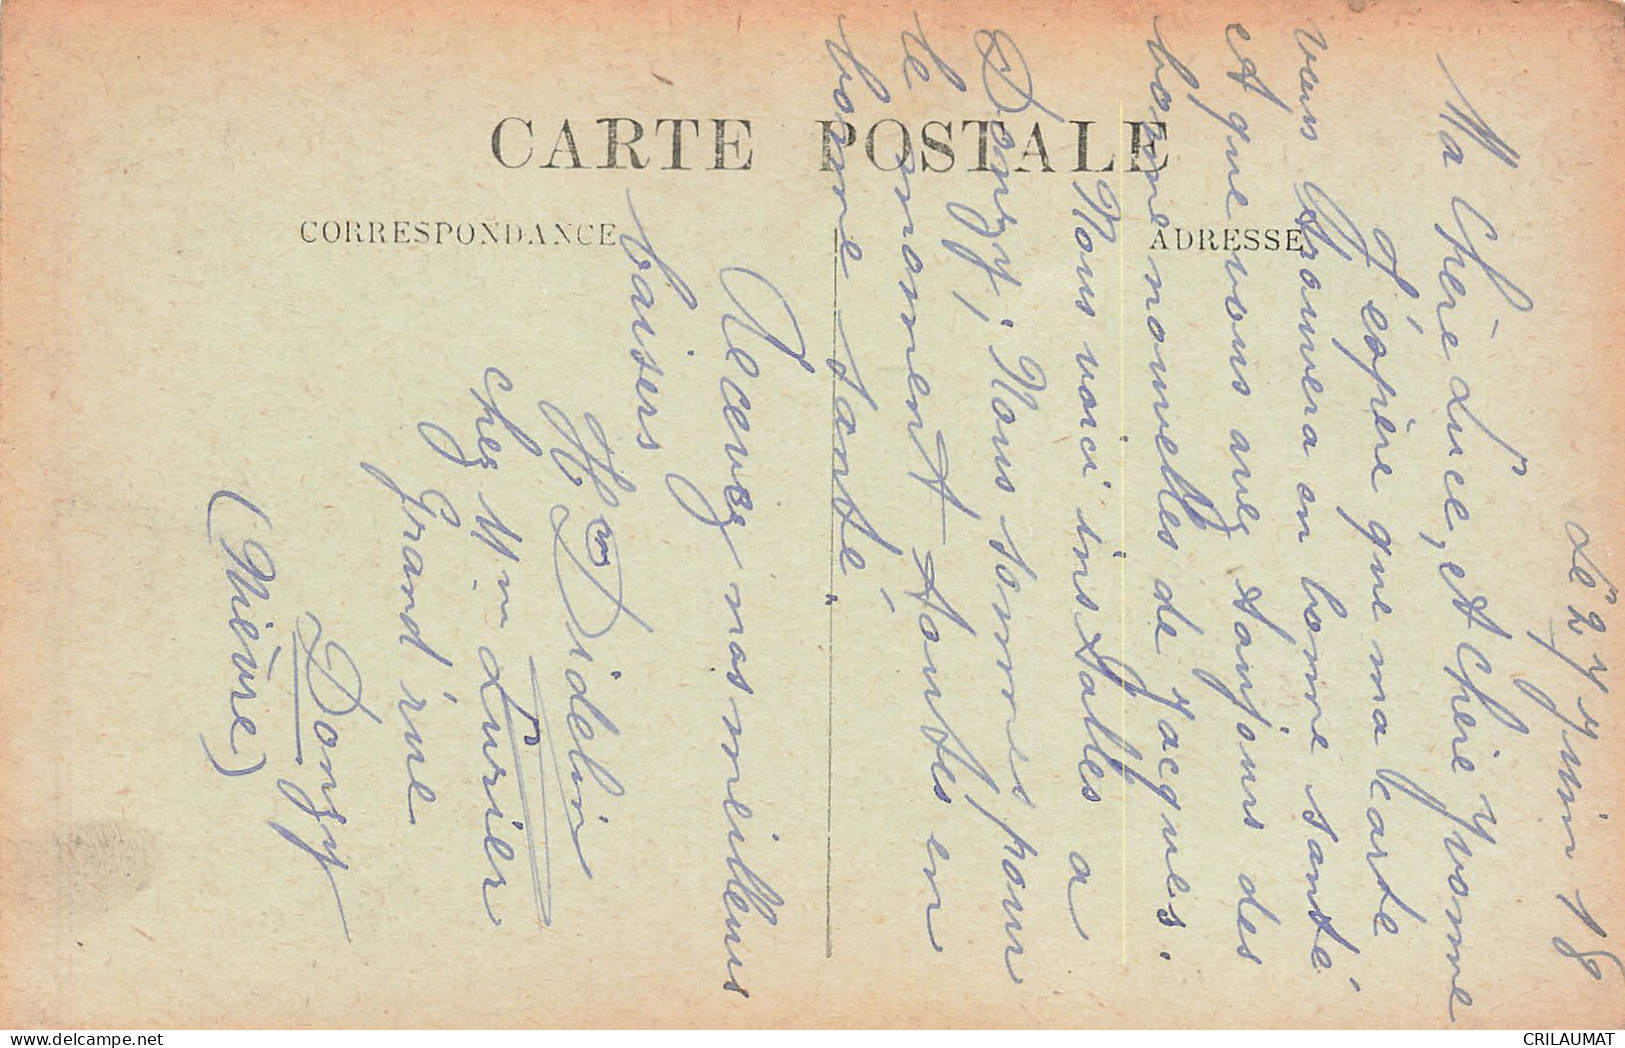 CARTE POSTALE
CORRESPONDANCE
ADRESSE
Le 27 Juin 18
Ma Chère Luce, et Chère Yvonne
J'éspère que ma carte
vous trouvera en bonne santé
et que vous avez toujours des
bonne nouvelles de Jacques.
Nous voici installes a
Donzy; Nous sommes pour
le moment toutes en
bonne santé.
Recevez nos meilleurs
baisers
H. Didelin
chez Mm Lurier
Grand'rue
Donzy
(Nièvre)
CRILAUMAT